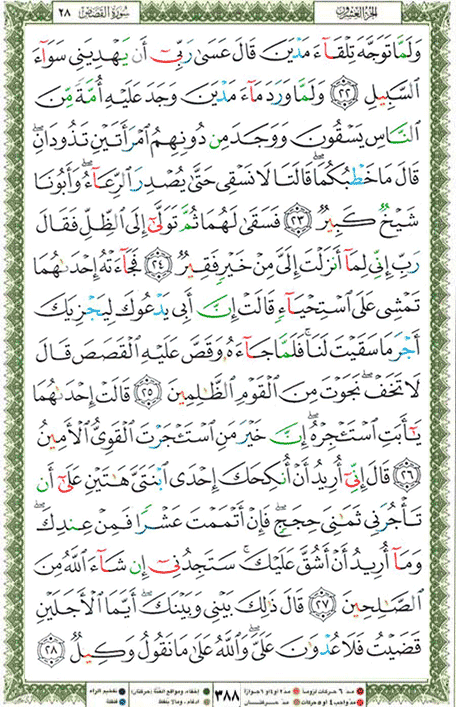 الجزء العشرون سورة القصص ٢٨
وَلَمَّا تَوَجَّهَ تِلْقَآءَ مَدْيَنَ قَالَ عَسَىٰ رَبِّىٓ أَن يَهْدِيَنِى سَوَآءَ
ٱلسَّبِيلِ ٢٢ وَلَمَّا وَرَدَ مَآءَ مَدْيَنَ وَجَدَ عَلَيْهِ أُمَّةً مِّنَ
ٱلنَّاسِ يَسْقُونَ وَوَجَدَ مِن دُونِهِمُ ٱمْرَأَتَيْنِ تَذُودَانِ ۖ
قَالَ مَا خَطْبُكُمَا ۖ قَالَتَا لَا نَسْقِى حَتَّىٰ يُصْدِرَ ٱلرِّعَآءُ ۖ وَأَبُونَا
شَيْخٌ كَبِيرٌ ٢٣ فَسَقَىٰ لَهُمَا ثُمَّ تَوَلَّىٰٓ إِلَى ٱلظِّلِّ فَقَالَ
رَبِّ إِنِّى لِمَآ أَنزَلْتَ إِلَىَّ مِنْ خَيْرٍ فَقِيرٌ ٢٤ فَجَآءَتْهُ إِحْدَىٰهُمَا
تَمْشِى عَلَى ٱسْتِحْيَآءٍ قَالَتْ إِنَّ أَبِى يَدْعُوكَ لِيَجْزِيَكَ
أَجْرَ مَا سَقَيْتَ لَنَا ۚ فَلَمَّا جَآءَهُۥ وَقَصَّ عَلَيْهِ ٱلْقَصَصَ قَالَ
لَا تَخَفْ ۖ نَجَوْتَ مِنَ ٱلْقَوْمِ ٱلظَّٰلِمِينَ ٢٥ قَالَتْ إِحْدَىٰهُمَا
يَٰٓأَبَتِ ٱسْتَـْٔجِرْهُ ۖ إِنَّ خَيْرَ مَنِ ٱسْتَـْٔجَرْتَ ٱلْقَوِىُّ ٱلْأَمِينُ
٢٦ قَالَ إِنِّىٓ أُرِيدُ أَنْ أُنكِحَكَ إِحْدَى ٱبْنَتَىَّ هَٰتَيْنِ عَلَىٰٓ أَن
تَأْجُرَنِى ثَمَٰنِىَ حِجَجٍ ۖ فَإِنْ أَتْمَمْتَ عَشْرًا فَمِنْ عِندِكَ ۖ
وَمَآ أُرِيدُ أَنْ أَشُقَّ عَلَيْكَ ۚ سَتَجِدُنِىٓ إِن شَآءَ ٱللَّهُ مِنَ
ٱلصَّٰلِحِينَ ٢٧ قَالَ ذَٰلِكَ بَيْنِى وَبَيْنَكَ ۖ أَيَّمَا ٱلْأَجَلَيْنِ
قَضَيْتُ فَلَا عُدْوَٰنَ عَلَىَّ ۖ وَٱللَّهُ عَلَىٰ مَا نَقُولُ وَكِيلٌ ٢٨
٣٨٨
مد ٦ حركات لزوماً مد ٢ او ٤ او ٦ جوازاً إخفاء، ومواقع الغنة (حركتان) تفخيم الراء
مد واجب ٤ او ٥ حركات مد حركتان ادغام، ومالا يلفظ قلقلة